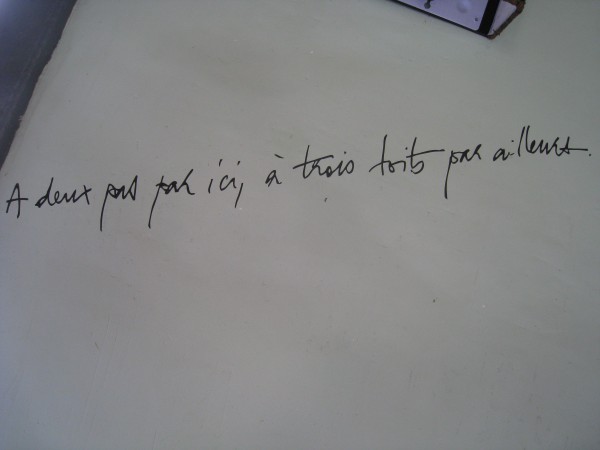 A deux pas par ici, à trois toits par ailleurs.